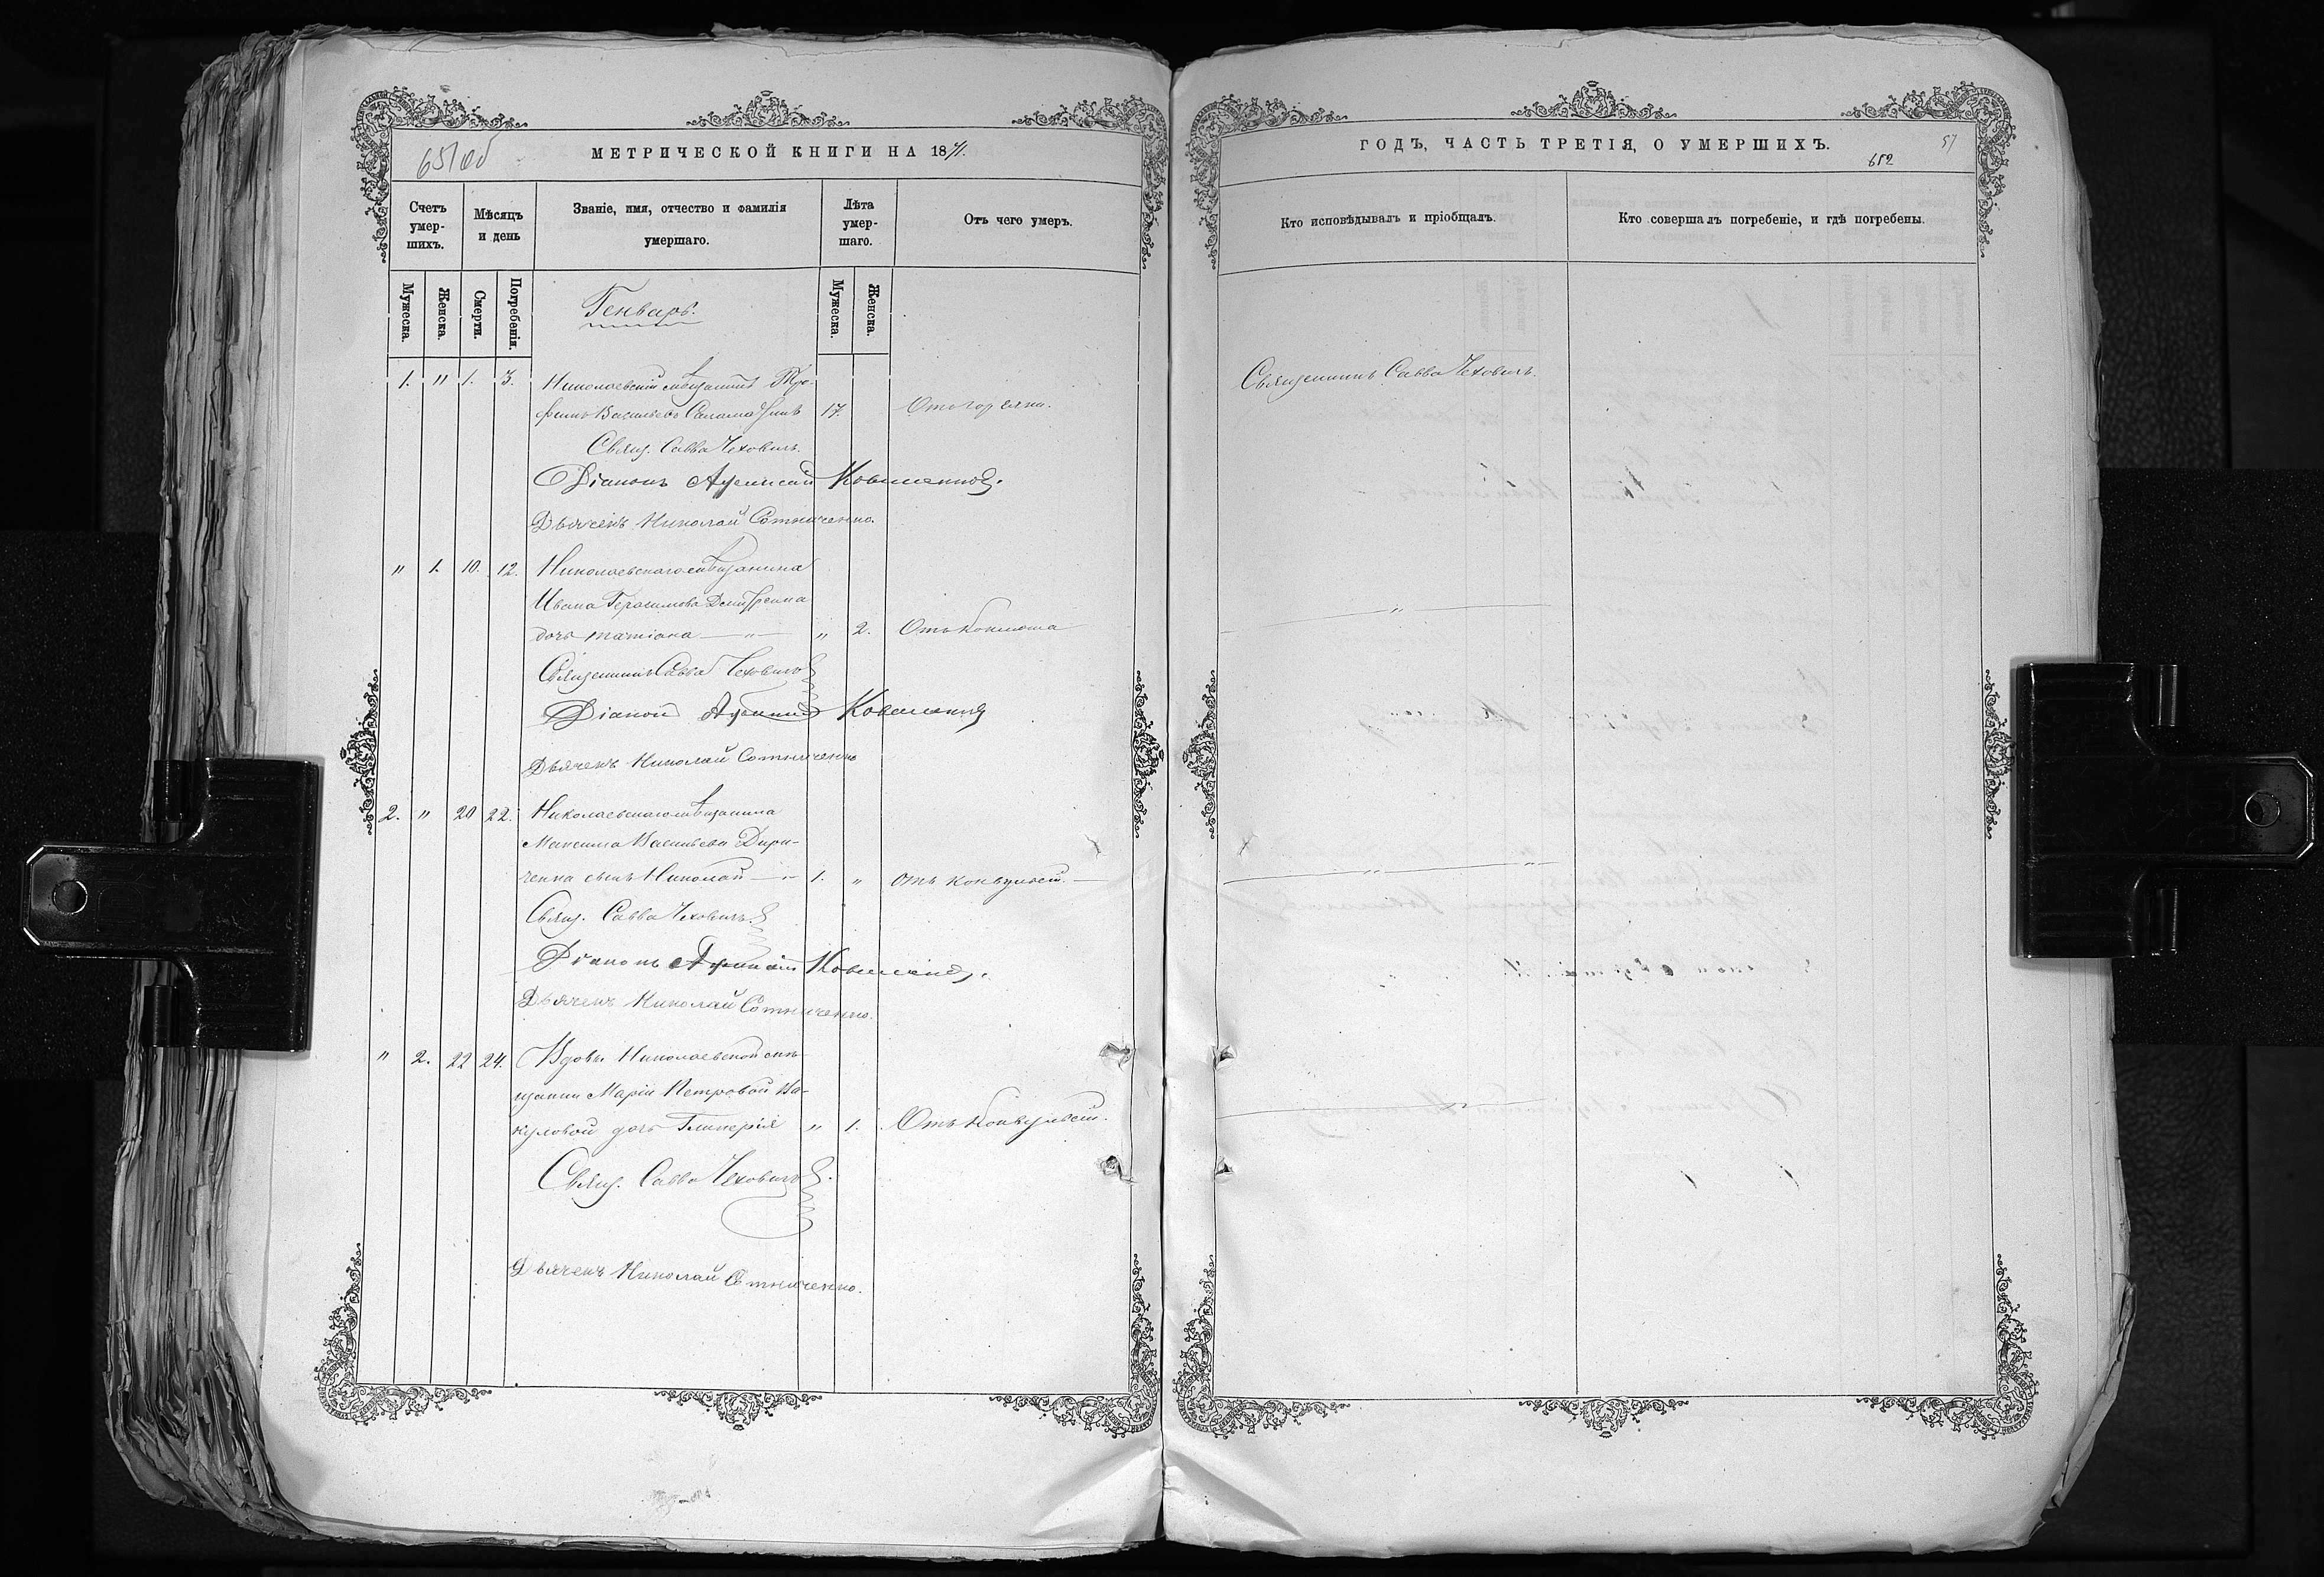 651 об
МЕТРИЧЕСКОЙ КНИГИ НА 1871.
Счетъ умер-шихъ.
Мѣсяцъ и день
Званіе, имя, отчество и фамилія умершаго.
Лѣта умер-шаго.
Отъ чего умеръ.
Мужеска.
Женска.
Смерти.
Погребенія.
Мужеска.
Женска.
Генварь.
1. " 1. 3. Николаевскій мѣщанинъ Тро-
фимъ Васильевъ 17. Отъ горячки.
Свящ. Савва Чеховичъ.
Діаконъ
Дьячекъ Николай Сотниченко.
" 1. 10. 12. Николаевскаго мѣщанина
Ивана Герасимова
дочь Татіана — " — " 2. Отъ коклюша
Священникъ Савва Чеховичъ
Діаконъ
Дьячекъ Николай Сотниченко
2. " 20 22. Николаевскаго мѣщанина
Максима Васильева Дири-
ченка сынъ Николай — " 1. " Отъ конвульсій. —
Свящ. Савва Чеховичъ.
Діаконъ
Дьячекъ Николай Сотниченко.
" 2. 22 24. Вдовы Николаевской мѣ-
щанки Маріи Петровой Ва-
куловой дочь Гликерія " 1. Отъ конвульсій.
Свящ. Савва Чеховичъ.
Дьячекъ Николай Сотниченко.
ГОДЪ, ЧАСТЬ ТРЕТІЯ, О УМЕРШИХЪ.
57
652
Кто исповѣдывалъ и пріобщалъ.
Кто совершалъ погребеніе, и гдѣ погребены.
Священникъ Савва Чеховичъ.
"
" "
"